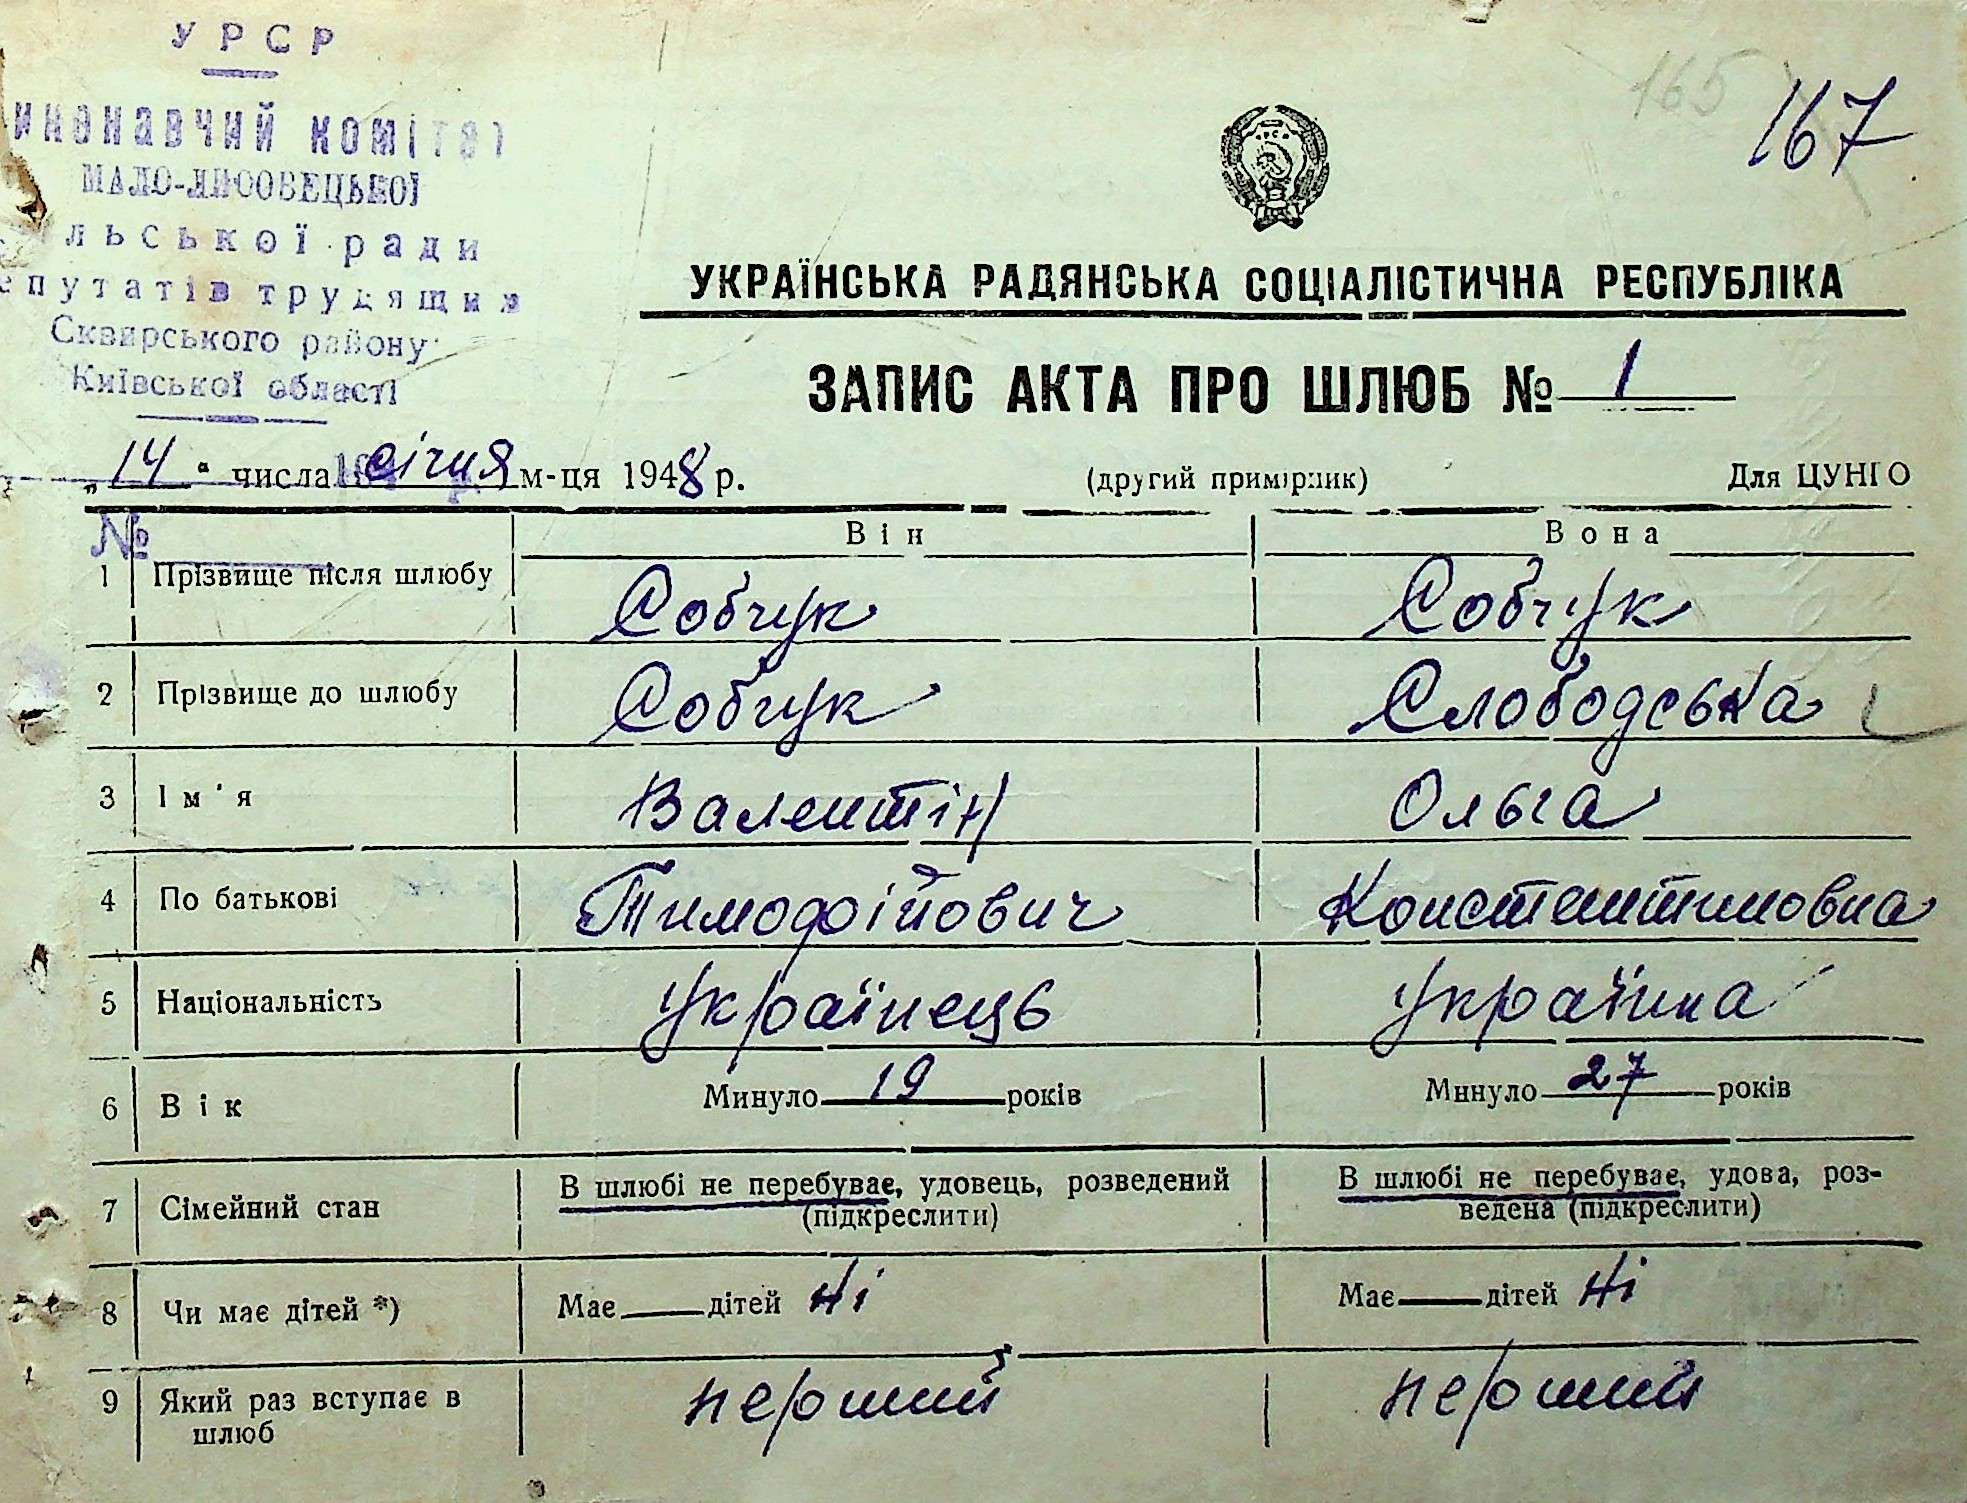 УРСР
иконавчий комітет
МАЛО-ЛИСОВЕЦЬКОЇ
льської ради
епутатів трудящих
Сквирського району
Київської області
165
167
УКРАЇНСЬКА РАДЯНСЬКА СОЦІАЛІСТИЧНА РЕСПУБЛІКА
ЗАПИС АКТА ПРО ШЛЮБ № 1
„14“ числа січня м-ця 1948 р. (другий примірник) Для ЦУНГО
№
Він Вона
1 Прізвище після шлюбу Собчук Собчук
2 Прізвище до шлюбу Собчук Слободська
3 Ім'я Валентін Ольга
4 По батькові Тимофійович Константиновна
5 Національність Українець Українка
6 Вік Минуло 19 років Минуло 27 років
7 Сімейний стан В шлюбі не перебуває, удовець, розведений (підкреслити) В шлюбі не перебуває, удова, роз-
ведена (підкреслити)
8 Чи має дітей *) Має дітей Ні Має дітей Ні
9 Який раз вступає в шлюб перший перший